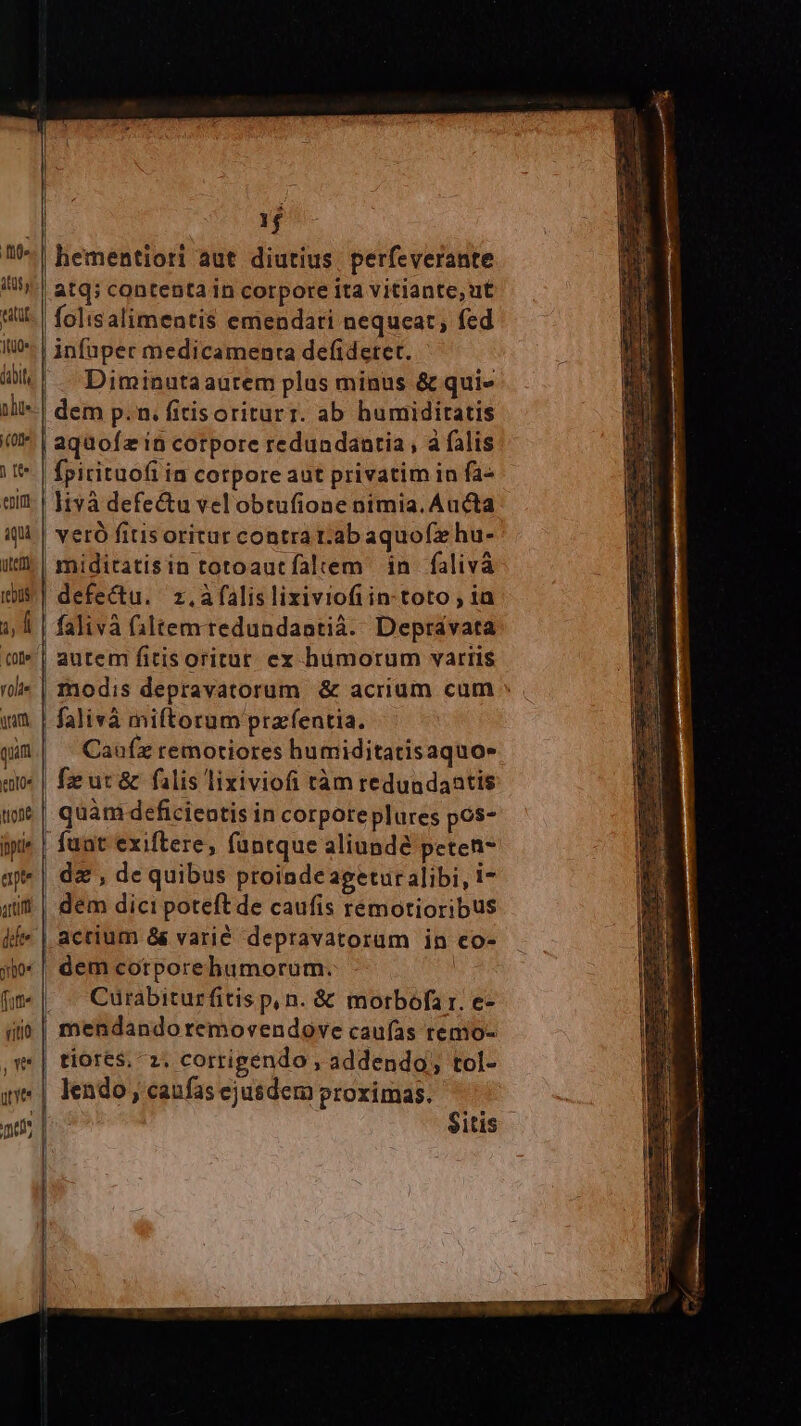 15
hementiori aut diutius perſeverante
atq; contenta in corpore ita vitiante, ut
ſolis alimentis emendari nequeat, ſed
inſuper medicamenta deſideret.
Diminuta autem plus minus & qui-
dem p. n. ſitis oritur 1. ab humiditatis
aquoſæ in corpore redundantia, à ſalis
ſpirituoſi in corpore aut privatim in ſa-
livâ defectu vel obtuſione nimia. Aucta
verò ſitis oritur contra 1. ab aquoſæ hu-
miditatis in toto aut ſaltem in ſalivâ
defectu. 2. à ſalis lixivioſi in toto, in
ſalivâ ſaltem redundantiâ. Depravata
autem ſitis oritur ex humorum variis
modis depravatorum & acrium cum
ſalivâ miſtorum præſentia.
Cauſæ remotiores humiditatis aquo-
ſæ ut & ſalis lixivioſi tàm redundantis
quàm deficientis in corpore plures pos-
ſunt exiſtere, ſuntque aliundè peten-
dæ, de quibus proinde agetur alibi, i-
dem dici poteſt de cauſis remotioribus
acrium & variè depravatorum in eo-
dem corpore humorum.
Curabitur ſitis p. n. & morboſa 1. e-
mendando removendove cauſas remo-
tiores. 2. corrigendo, addendo, tol-
lendo, cauſas ejusdem proximas.
Sitis